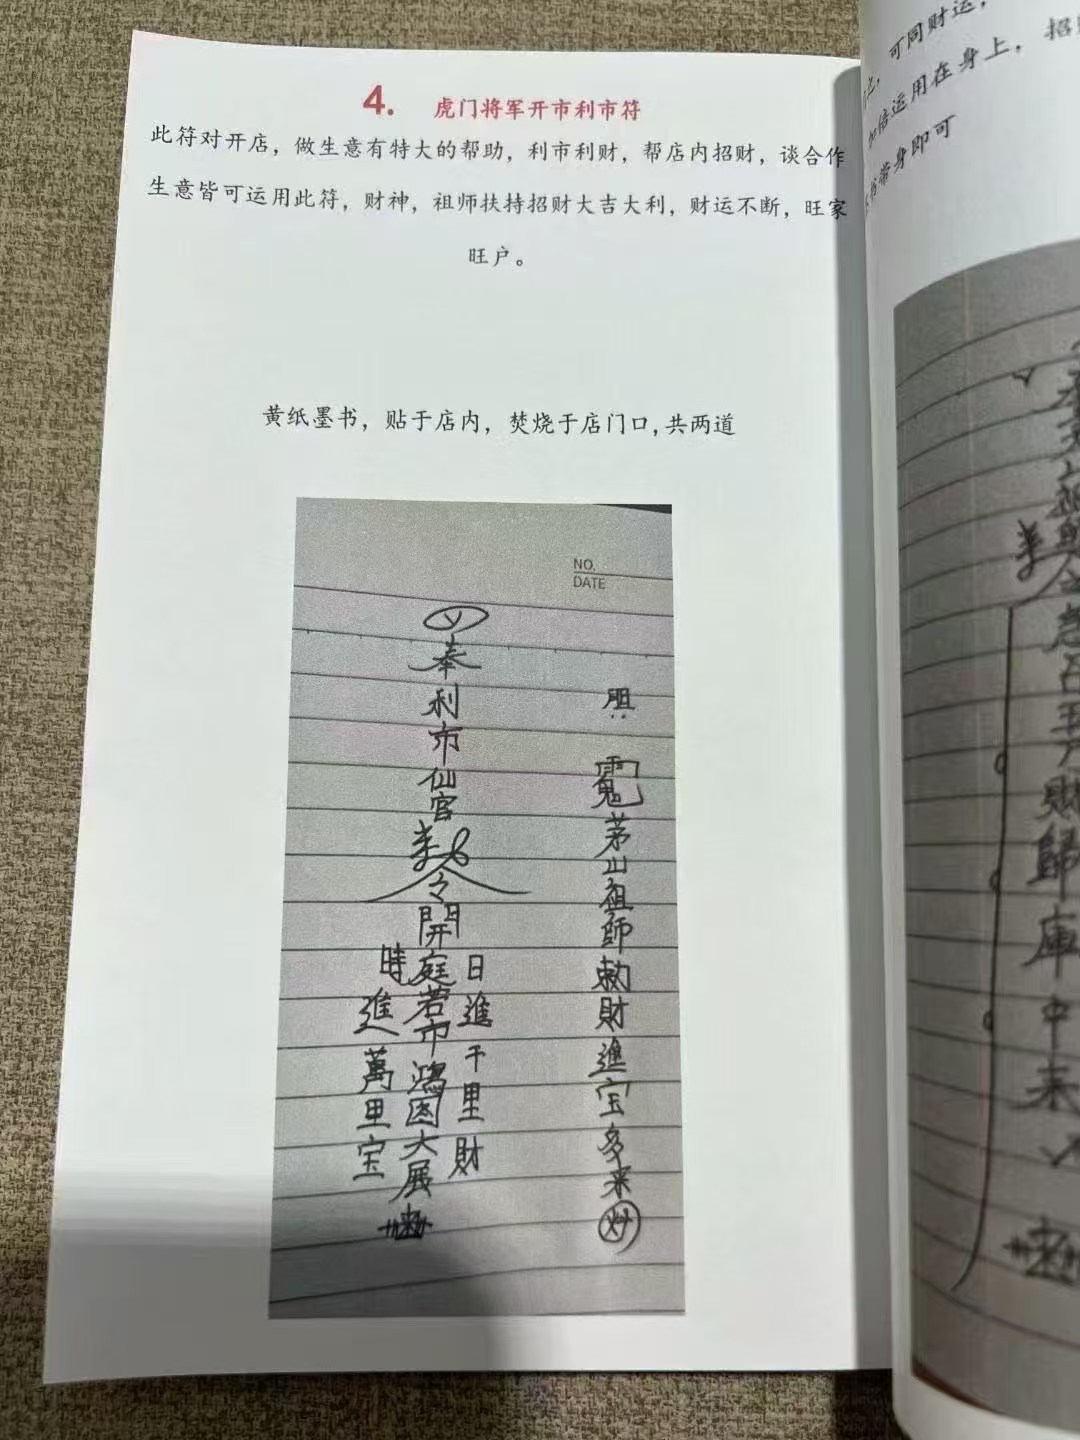 4. 虎门将军开市利市符
此符对开店，做生意有特大的帮助，利市利财，帮店内招财，谈合作
生意皆可运用此符，财神，祖师扶持招财大吉大利，财运不断，旺家
旺户。
黄纸墨书，贴于店内，焚烧于店门口,共两道
NO.
DATE
奉利市仙官
令開庭若市鴻图大展
日進千里財
時進萬里宝
胆
茅山祖師敕財進宝多来
可同财运，
倍运用在身上，招
带身即可
財歸庫中来